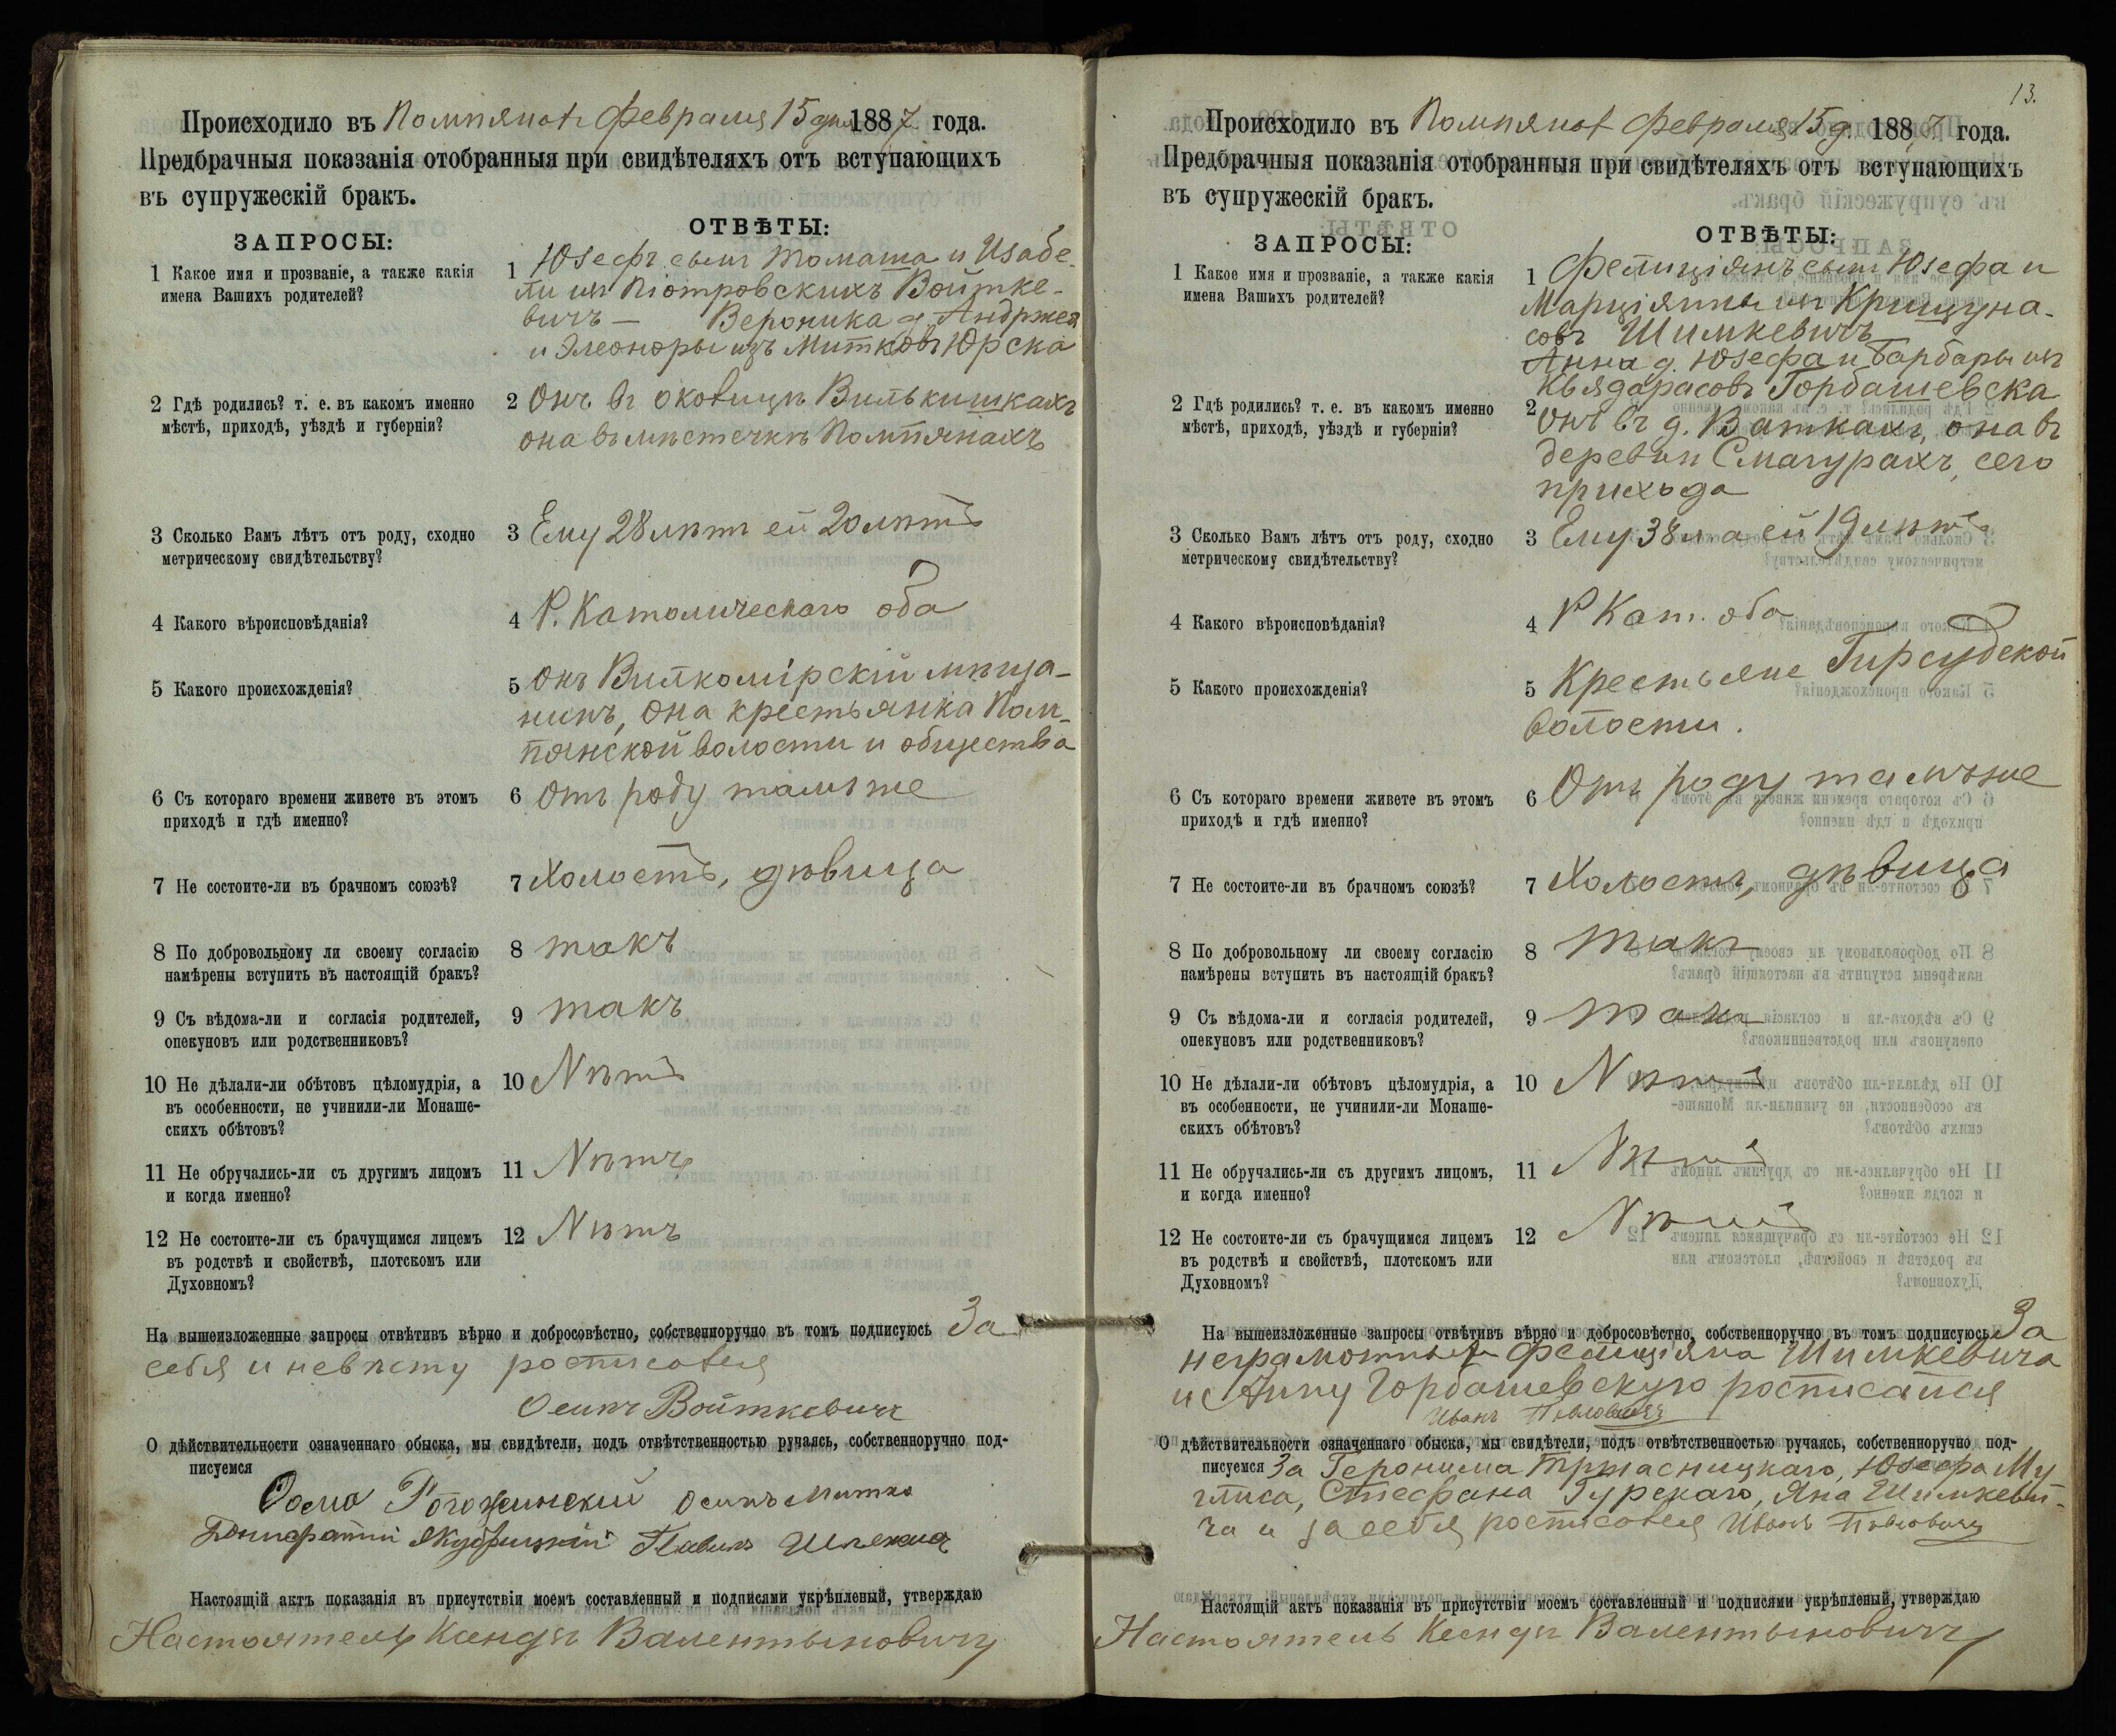 Происходило въ Помпянах Февраля 15 дня 1887 года.
Предбрачныя показанія отобранныя при свидѣтеляхъ отъ вступающихъ
въ супружескій бракъ.
ЗАПРОСЫ:
ОТВѢТЫ:
1 Какое имя и прозваніе, а также какія
имена Вашихъ родителей?
1 Юзефъ сынъ Томаша и Изабе-
ли изъ Піотровскихъ Войтке-
вичъ — Вероника д. Андржея
и Элеоноры изъ Митковъ Юрска
2 Гдѣ родились? т. е. въ какомъ именно
мѣстѣ, приходѣ, уѣздѣ и губерніи?
2 Онъ въ околицѣ Вилькишкахъ
она въ мѣстечкѣ Помпянахъ
3 Сколько Вамъ лѣтъ отъ роду, сходно
метрическому свидѣтельству?
3 Ему 28 лѣтъ ей 20 лѣтъ
4 Какого вѣроисповѣданія?
4 Р. Католическаго оба
5 Какого происхожденія?
5 Онъ Вилкомірскій мѣща-
нинъ, она крестьянка Пом-
пянской волости и общества
6 Съ котораго времени живете въ этомъ
приходѣ и гдѣ именно?
6 Отъ роду тамъ же
7 Не состоите-ли въ брачномъ союзѣ?
7 Холостъ, дѣвица
8 По добровольному ли своему согласію
намѣрены вступить въ настоящій бракъ?
8 такъ
9 Съ вѣдома-ли и согласія родителей,
опекуновъ или родственниковъ?
9 такъ
10 Не дѣлали-ли обѣтовъ цѣломудрія, а
въ особенности, не учинили-ли Монаше-
скихъ обѣтовъ?
10 Нѣтъ
11 Не обручались-ли съ другимъ лицомъ
и когда именно?
11 Нѣтъ
12 Не состоите-ли съ брачущимся лицемъ
въ родствѣ и свойствѣ, плотскомъ или
Духовномъ?
12 Нѣтъ
На вышеизложенные запросы отвѣтивъ вѣрно и добросовѣстно, собственноручно въ томъ подписуюсь За
себя и невѣсту росписался
Осипъ Войткевичъ
О дѣйствительности означеннаго обыска, мы свидѣтели, подъ отвѣтственностью ручаясь, собственноручно под-
писуемся
Рогожинскій Осипъ Митко
Павилъ
Настоящій актъ показанія въ присутствіи моемъ составленный и подписями укрѣпленый, утверждаю
Настоятель Ксендзъ Валентыновичъ
13.
Происходило въ Помпянах Февраля 15 д. 1887 года.
Предбрачныя показанія отобранныя при свидѣтеляхъ отъ вступающихъ
въ супружескій бракъ.
ЗАПРОСЫ:
ОТВѢТЫ:
1 Какое имя и прозваніе, а также какія
имена Вашихъ родителей?
1 Фелиціянъ сынъ Юзефа и
Марціянны изъ Крищуна-
совъ Шимкевичъ
Анна д. Юзефа и Барбары изъ
Кьядарасовъ Горбашевска
2 Гдѣ родились? т. е. въ какомъ именно
мѣстѣ, приходѣ, уѣздѣ и губерніи?
2 Онъ въ д. Ваткахъ, она въ
деревни Смагурахъ, сего
прихода
3 Сколько Вамъ лѣтъ отъ роду, сходно
метрическому свидѣтельству?
3 Ему 38 л а ей 19 лѣтъ
4 Какого вѣроисповѣданія?
4 Р Кат. оба
5 Какого происхожденія?
5 Крестьяне Гирсудской
волости.
6 Съ котораго времени живете въ этомъ
приходѣ и гдѣ именно?
6 Отъ роду тамъ же
7 Не состоите-ли въ брачномъ союзѣ?
7 Холостъ, дѣвица
8 По добровольному ли своему согласію
намѣрены вступить въ настоящій бракъ?
8 такъ
9 Съ вѣдома-ли и согласія родителей,
опекуновъ или родственниковъ?
9 такъ
10 Не дѣлали-ли обѣтовъ цѣломудрія, а
въ особенности, не учинили-ли Монаше-
скихъ обѣтовъ?
10 Нѣтъ
11 Не обручались-ли съ другимъ лицомъ,
и когда именно?
11 Нѣтъ
12 Не состоите-ли съ брачущимся лицемъ
въ родствѣ и свойствѣ, плотскомъ или
Духовномъ?
12 Нѣтъ
На вышеизложенные запросы отвѣтивъ вѣрно и добросовѣстно, собственноручно въ томъ подписуюсь За
неграмотныхъ Фелиціяна Шимкевича
и Анну Горбашевскую росписался
Иванъ Павловичъ
О дѣйствительности означеннаго обыска, мы свидѣтели, подъ отвѣтственностью ручаясь, собственноручно под-
писуемся За Геронима Тржасницкаго, Юзефа Му-
глиса, Стефана Гурскаго, Яна Шимкеви-
ча и за себя росписался Иванъ Павловичъ
Настоящій актъ показанія въ присутствіи моемъ составленный и подписями укрѣпленый, утверждаю
Настоятель Ксендзъ Валентыновичъ